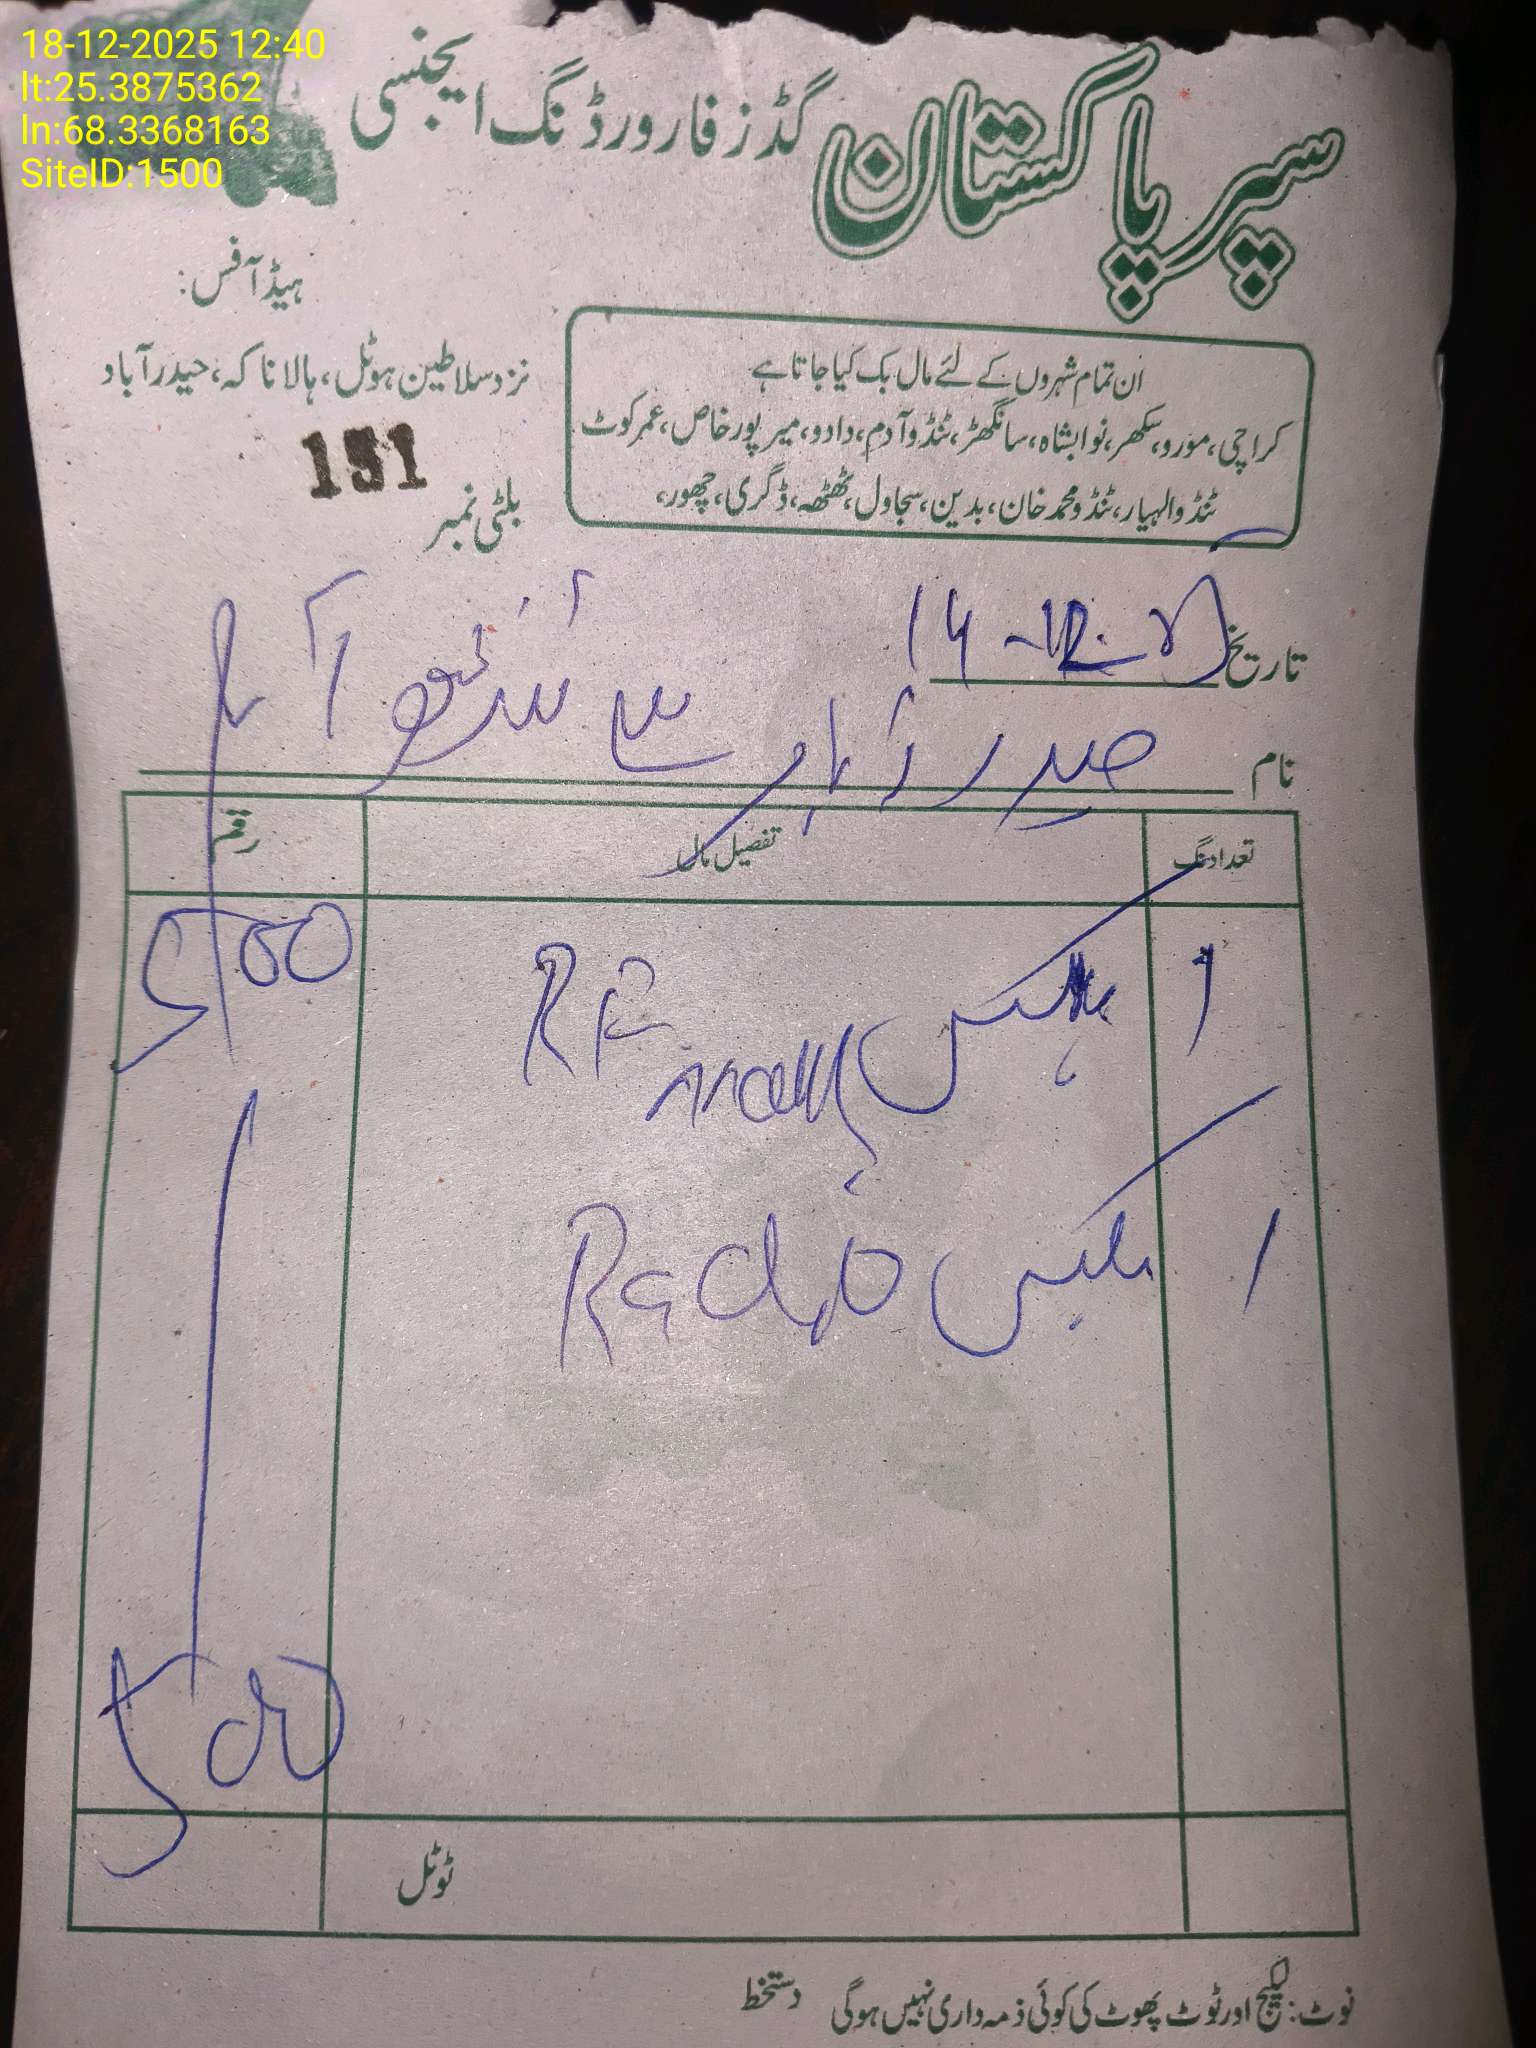 18-12-2025 12:40
lt:25.3875362
ln:68.3368163
SiteID:1500
سپر پاکستان گڈز فارورڈنگ ایجنسی
ہیڈ آفس:
نزد سلاطین ہوٹل، ہالا ناکہ، حیدرآباد
ان تمام شہروں کے لئے مال بک کیا جاتا ہے
کراچی، مورو، سکھر، نوابشاہ، سانگھڑ، ٹنڈو آدم، دادو، میرپورخاص، عمرکوٹ
ٹنڈوالہیار، ٹنڈو محمد خان، بدین، سجاول، ٹھٹھہ، ڈگری، چھور،
بلٹی نمبر 151
تاریخ 14-12-25
نام حیدرآباد سے ٹنڈو آدم
تعداد نگ تفصیل مال رقم
1 بکس RF 500
1 بکس Radio
500
ٹوٹل
نوٹ: لیکیج اور ٹوٹ پھوٹ کی کوئی ذمہ داری نہیں ہوگی دستخط